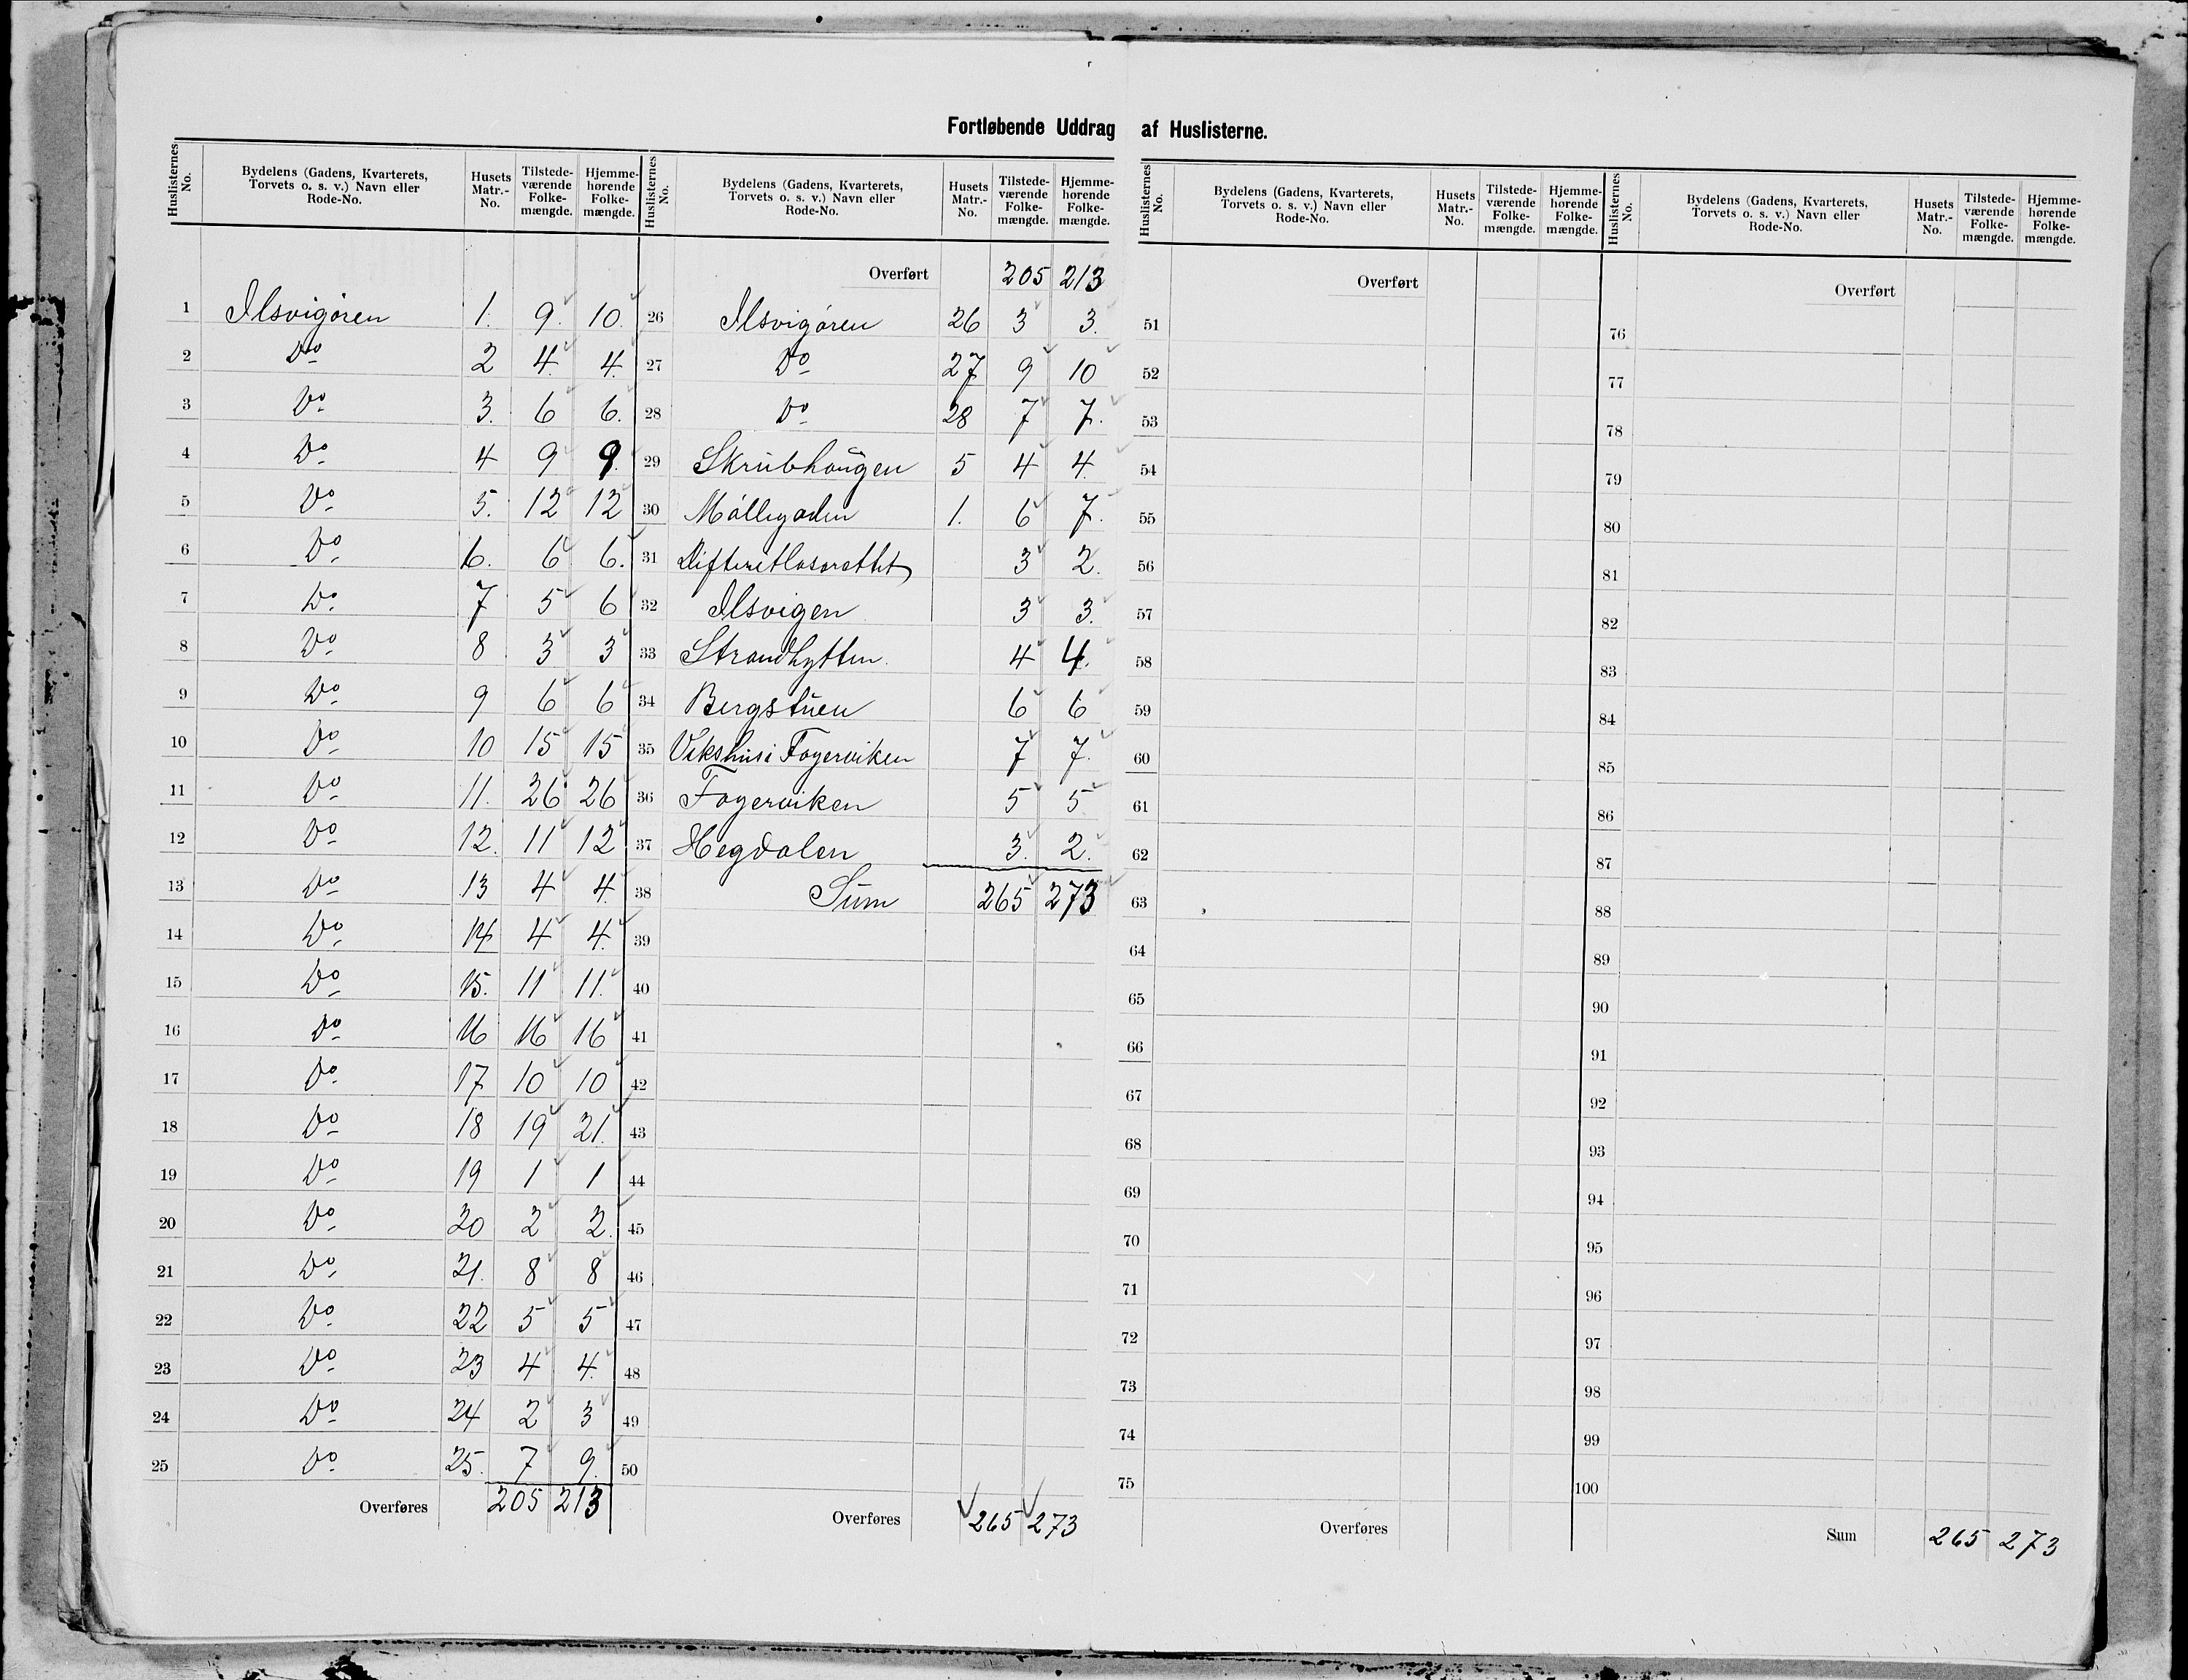 Fortløbende Uddrag af Huslisterne.
Huslisternes No. Bydelens (Gadens, Kvarterets, Torvets o. s. v.) Navn eller Rode-No. Husets Matr.-No. Tilstedeværende Folkemængde. Hjemmehørende Folkemængde.
1 Ilsvigøren 1. 9. 10.
2 Do 2 4. 4.
3 Do 3. 6 6.
4 Do 4 9 9.
5 Do 5. 12 12
6 Do 6. 6 6.
7 Do 7 5 6
8 Do 8 3 3
9 Do 9 6 6
10 Do 10 15 15
11 Do 11. 26 26
12 Do 12. 11 12
13 Do 13 4 4.
14 Do 14 4 4.
15 Do 15. 11 11.
16 Do 16 16 16
17 Do 17 10 10
18 Do 18 19 21.
19 Do 19 1 1
20 Do 20 2 2.
21 Do 21. 8 8
22 Do 22 5 5
23 Do 23 4 4.
24 Do 24 2 3
25 Do 25. 7 9.
Overføres 205 213
Huslisternes No. Bydelens (Gadens, Kvarterets, Torvets o. s. v.) Navn eller Rode-No. Husets Matr.-No. Tilstedeværende Folkemængde. Hjemmehørende Folkemængde.
Overført 205 213
26 Ilsvigøren 26 3 3.
27 Do 27 9 10
28 Do 28 7 7.
29 Skrubhaugen 5 4 4.
30 Møllegaden 1. 6 7.
31 Difteritlasarettet 3 2.
32 Ilsvigen 3 3.
33 Strandhytten. 4 4.
34 Bergstuen 6 6
35 Vekshus i Fagerviken 7 7.
36 Fagerviken 5 5
37 Hegdalen 3. 2.
38 Sum 265 273
39
40
41
42
43
44
45
46
47
48
49
50
Overføres 265 273
Huslisternes No. Bydelens (Gadens, Kvarterets, Torvets o. s. v.) Navn eller Rode-No. Husets Matr.-No. Tilstedeværende Folkemængde. Hjemmehørende Folkemængde.
Overført
51
52
53
54
55
56
57
58
59
60
61
62
63
64
65
66
67
68
69
70
71
72
73
74
75
Overføres
Huslisternes No. Bydelens (Gadens, Kvarterets, Torvets o. s. v.) Navn eller Rode-No. Husets Matr.-No. Tilstedeværende Folkemængde. Hjemmehørende Folkemængde.
Overført
76
77
78
79
80
81
82
83
84
85
86
87
88
89
90
91
92
93
94
95
96
97
98
99
100
Sum 265 273